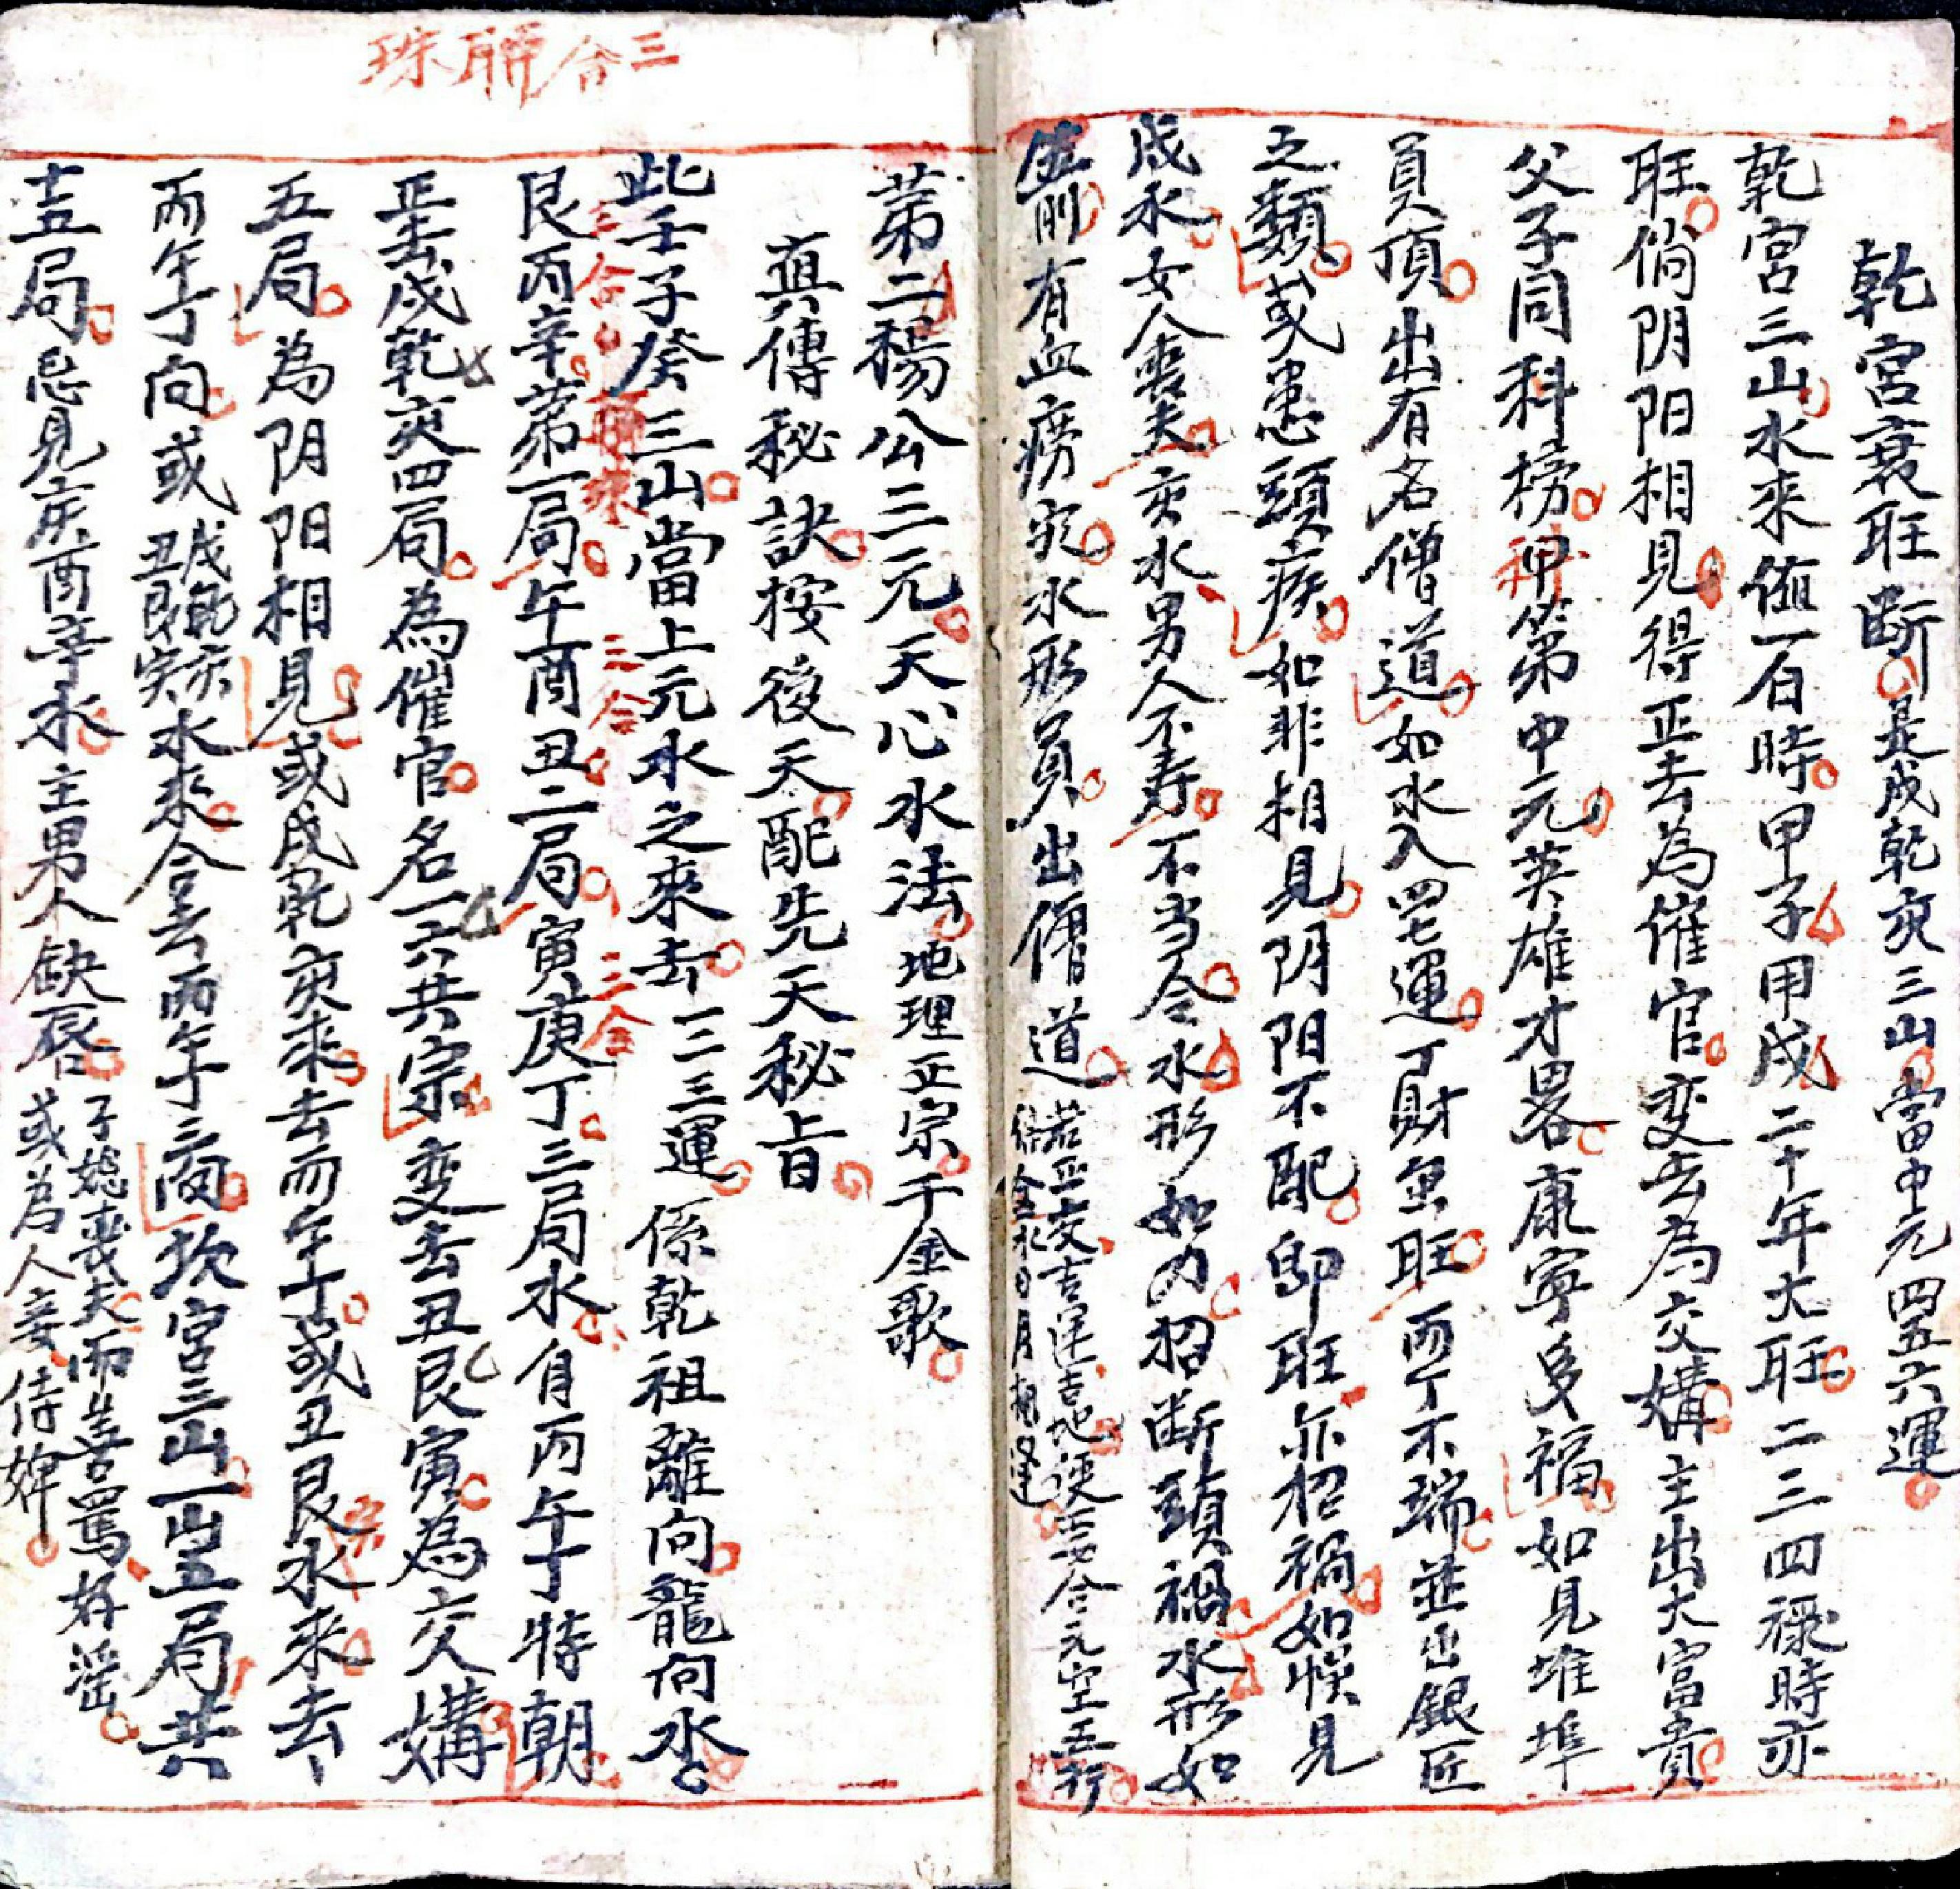 乾宮衰旺斷是戌乾亥三山當中元四五六運
乾宮三山水來值一白時甲子甲戌二十年大旺二三四祿時亦
旺倘阴阳相見得正去為催官变去為交媾主出大富貴
父子同科榜甲第中元英雄才畧康寧多福如見堆埠
員頂出有名僧道如水入四七運丁財魚旺而丁不瑞並出銀匠
之類或患頭疾如非相見阴阳不配卽旺亦招禍如悞見
戌水女人喪夫亥水男人不寿不当令水形如刀招斷頭禍水形如
前有血癆水形員出僧道
若正交吉運吉地便云合元空五行
金水日月相逢
三合聯珠
第二楊公三元天心水法地理正宗千金歌
真傳秘訣按後天配先天秘旨
此壬子癸三山當上元水之來去一二三運係乾祖離向龍向水
三合 三合 三合
艮丙辛第一局午酉丑二局寅庚丁三局水有丙午丁特朝
正去戌乾亥四局為催官名一六共宗变去丑艮寅為交媾
五局為阴阳相見或戌乾亥來去而午丁或丑艮水來去
丙午丁向或戌乾亥丑艮寅水來合去丙午丁三向坎宮三山一山五局共
十五局忌見庚酉辛水主男人缺唇子媳喪夫而善罵好淫
或為人妾侍婢